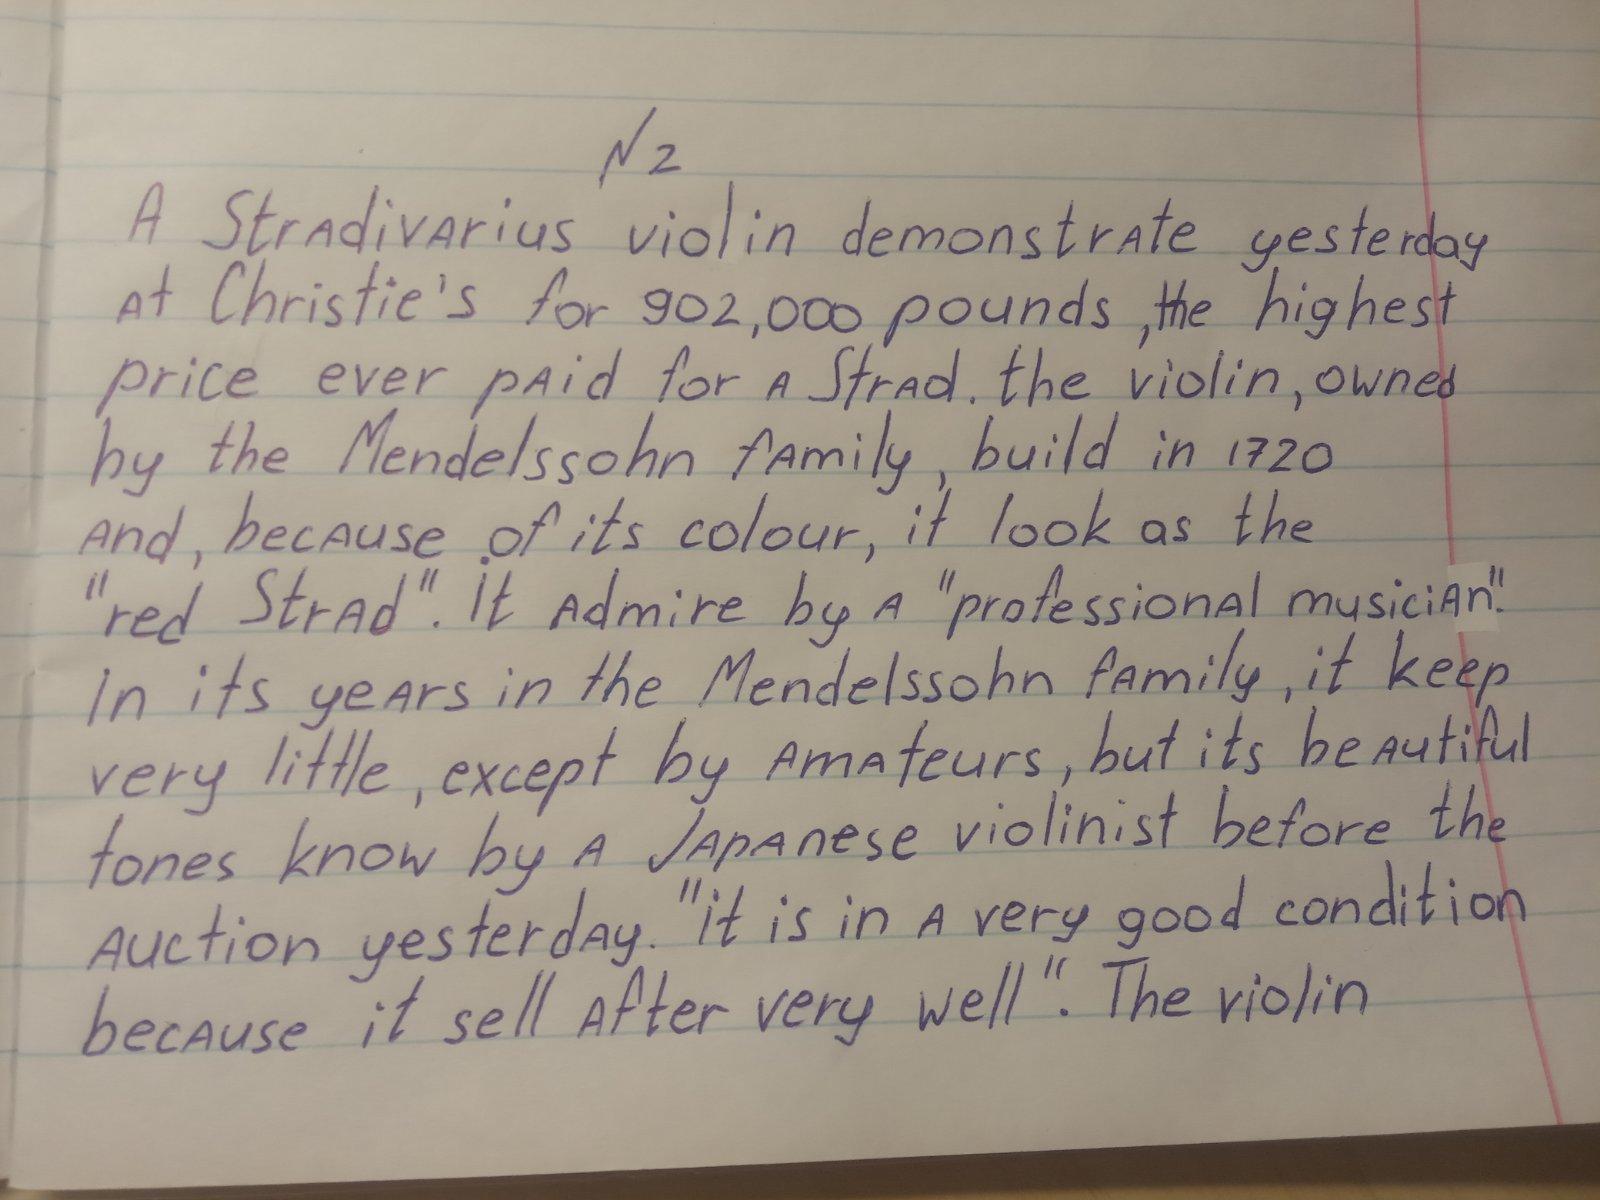 N2
A Stradivarius violin demonstrate yesterday
at Christie's for 902,000 pounds, the highest
price ever paid for a Strad. the violin, owned
by the Mendelssohn family, build in 1720
and, because of its colour, it look as the
"red Strad". it admire by a "professional musician".
in its years in the Mendelssohn family, it keep
very little, except by amateurs, but its beautiful
tones know by a Japanese violinist before the
auction yesterday. "it is in a very good condition
because it sell after very well". The violin